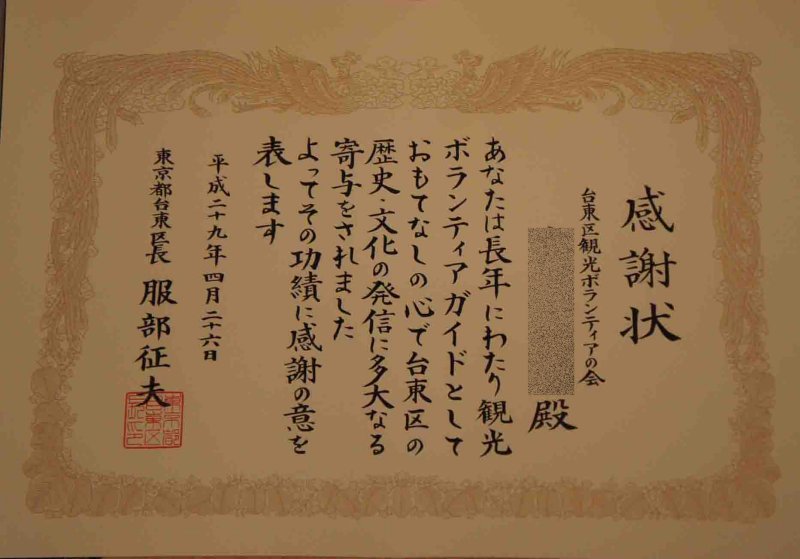 感謝状
台東区観光ボランティアの会
殿
あなたは長年にわたり観光
ボランティアガイドとして
おもてなしの心で台東区の
歴史・文化の発信に多大なる
寄与をされました
よってその功績に感謝の意を
表します
平成二十九年四月二十六日
東京都台東区長 服部征夫